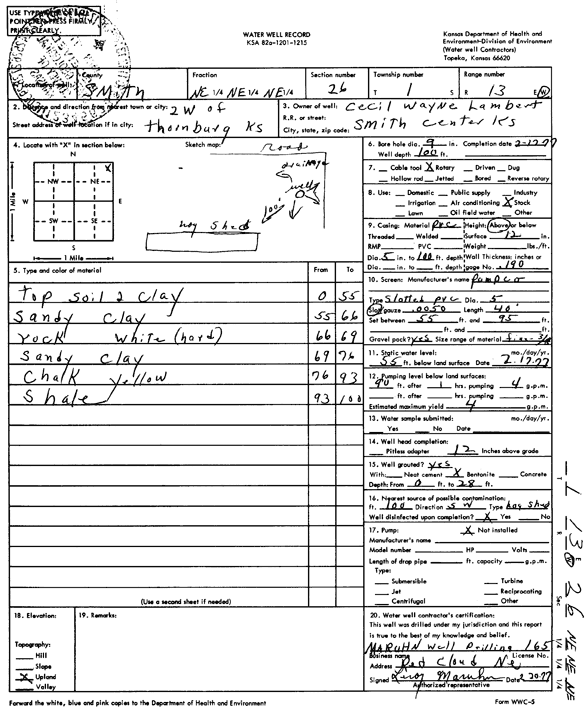 USE TYPEWRITER OR BALL
POINT PEN-PRESS FIRMLY,
PRINT CLEARLY.
WATER WELL RECORD
KSA 82a-1201-1215
Kansas Department of Health and
Environment-Division of Environment
(Water well Contractors)
Topeka, Kansas 66620
1. Location of well: County Smith Fraction NE 1/4 NE 1/4 NE 1/4 Section number 26 Township number T 1 S Range number R 13 E/W
2. Distance and direction from nearest town or city: 2 W of
Street address of well location if in city: thornburg Ks
3. Owner of well: Cecil Wayne Lambert
R.R. or street:
City, state, zip code: Smith Center Ks
4. Locate with "X" in section below:
N
X
NW NE
W E
SW SE
S
1 Mile
1 Mile
Sketch map:
road
drainage
well
100'
hay shed
5. Type and color of material From To
top soil 2 clay 0 55
Sandy clay 55 66
rock white (hard) 66 69
Sandy clay 69 76
Chalk yellow 76 93
Shale 93 100
(Use a second sheet if needed)
6. Bore hole dia. 9 in. Completion date 2-17-77
Well depth 100 ft.
7. Cable tool X Rotary Driven Dug
Hollow rod Jetted Bored Reverse rotary
8. Use: Domestic Public supply Industry
Irrigation Air conditioning X Stock
Lawn Oil field water Other
9. Casing: Material PVC Height: Above or below
Threaded Welded Surface 12 in.
RMP PVC Weight lbs./ft.
Dia. 5 in. to 100 ft. depth Wall Thickness: inches or
Dia. in. to ft. depth gage No. .190
10. Screen: Manufacturer's name Pampco
Type Slotted pvc Dia. 5
Slot/gauze .0050 Length 40'
Set between 55 ft. and 95 ft.
ft. and ft.
Gravel pack? yes Size range of material
11. Static water level: mo./day/yr.
55 ft. below land surface Date 2-17-77
12. Pumping level below land surfaces:
90 ft. after 1 hrs. pumping 4 g.p.m.
ft. after hrs. pumping g.p.m.
Estimated maximum yield 4 g.p.m.
13. Water sample submitted: mo./day/yr.
Yes No Date
14. Well head completion:
Pitless adapter 12 Inches above grade
15. Well grouted? yes
With: Neat cement X Bentonite Concrete
Depth: From 0 ft. to 28 ft.
16. Nearest source of possible contamination:
ft. 100 Direction SW Type hay shed
Well disinfected upon completion? X Yes No
17. Pump: X Not installed
Manufacturer's name
Model number HP Volts
Length of drop pipe ft. capacity g.p.m.
Type:
Submersible Turbine
Jet Reciprocating
Centrifugal Other
18. Elevation:
Topography:
Hill
Slope
X Upland
Valley
19. Remarks:
20. Water well contractor's certification:
This well was drilled under my jurisdiction and this report
is true to the best of my knowledge and belief.
Maruhn Well Drilling 165
Business name License No.
Address Red Cloud Ne
Signed Leroy Maruhn Date 2-20-77
Authorized representative
Forward the white, blue and pink copies to the Department of Health and Environment
Form WWC-5
T 1 R 13 E W Sec 26 1/4 NE 1/4 NE 1/4 NE